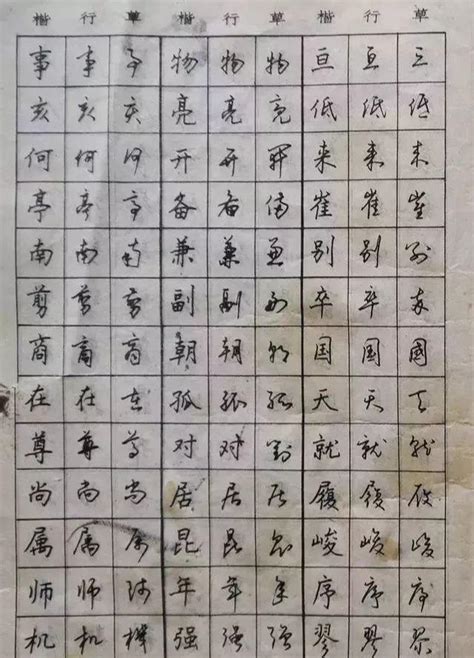 楷 行 草 楷 行 草 楷 行 草
事 事 事 物 物 物 亘 亘 亘
亥 亥 亥 亮 亮 亮 低 低 低
何 何 何 开 开 開 来 来 来
亭 亭 亭 备 备 備 崔 崔 崔
南 南 南 兼 兼 兼 别 别 别
剪 剪 剪 副 副 副 卒 卒 卒
商 商 商 朝 朝 朝 国 国 國
在 在 在 孤 孤 孤 天 天 天
尊 尊 尊 对 对 對 就 就 就
尚 尚 尚 居 居 居 履 履 履
属 属 属 昆 昆 昆 峻 峻 峻
师 师 师 年 年 年 序 序 序
机 机 機 强 强 强 琴 琴 琴